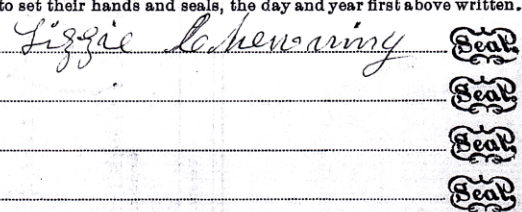 to set their hands and seals, the day and year first above written.
Lizzie Seal.
Seal.
Seal.
Seal.